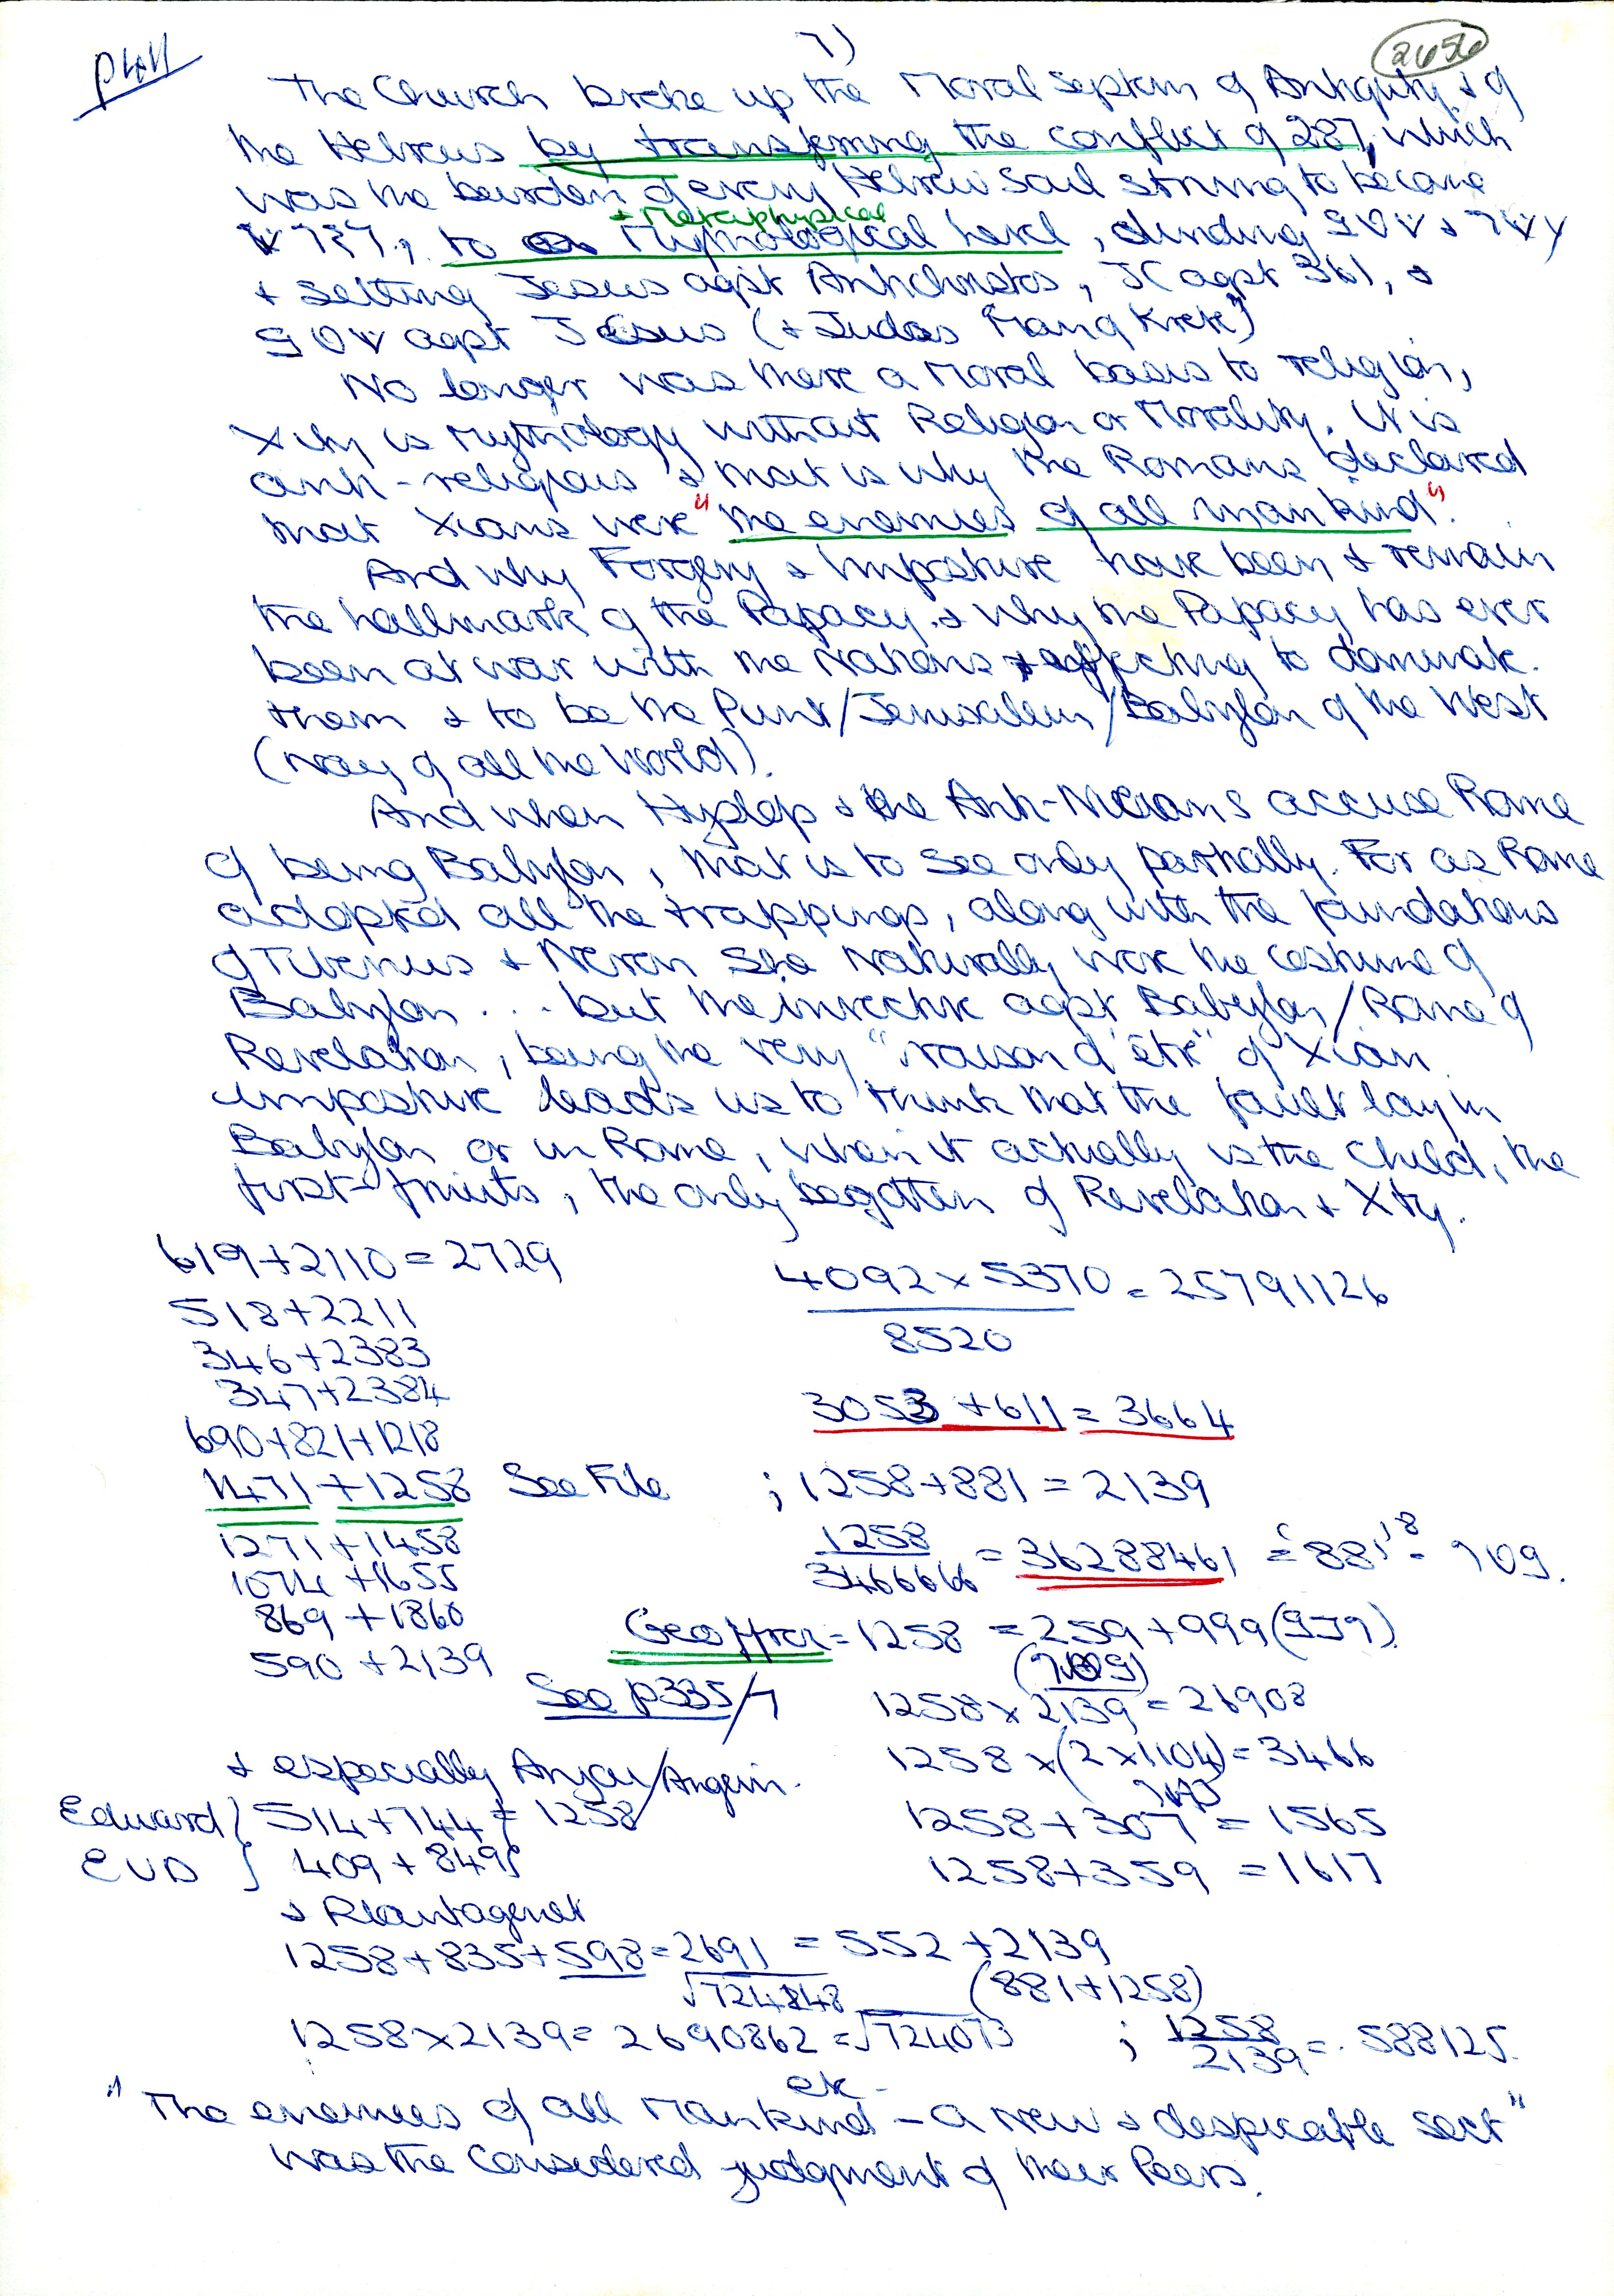 7)
2656
The Church broke up the Moral system of Antiquity & of
the Hebrews by transferring the conflict of 287, which
was the burden of every Hebrew Soul striving to become
+ Metaphysical
to Mythological level, dividing
+ setting Jesus agst Antichristos, JC agst 361, &
agst Jesus (+ Judas
No longer was there a Moral basis to religion,
Xity is Mythology without Religion or Morality. It is
anti-religious & that is why the Romans declared
that Xians were "the enemies of all mankind".
And why Forgery & Imposture have been & remain
the hallmark of the Papacy & why the Papacy has ever
been at war with the Nations & affecting to dominate
them & to be the Punt/Jerusalem/Babylon of the West
(nay of all the World).
And when Hyslop & the Anti-Nicians accuse Rome
of being Babylon, that is to see only partially. For as Rome
adopted all the trappings, along with the foundations
of Tiberius & Neron she naturally wore the costume of
Babylon ... but the invective agst Babylon/Rome of
Revelation, being the very "raison d'être" of Xian
Imposture leads us to think that the fault lay in
Babylon or in Rome, when it actually is the Child, the
first-fruits, the only begotten of Revelation & Xty.
619+2110=2729
518+2211
346+2383
347+2384
690+821+1218
1471+1258 See File
1271+1458
1074+1655
869+1860
590+2139
4092×5370 = 25791126
8520
3053+611=3664
; 1258+881=2139
1258
3466666 = 36288461 = 881
Geoffrei=1258 = 259+999
See p335/7
1258×2139=26908
1258×(2×1104)=3466
1258+307=1565
1258+359=1617
+ especially Anjou/Angevin.
Edward } 514+744 } = 1258
EVD } 409+849 }
& Plantagenet
1258+835+598=2691 = 552+2139
√724848 (881+1258)
1258×2139=2690862=√724073 ; 1258
2139 = .588125
etc -
"The enemies of all Mankind - a new & despicable sect"
was the considered judgment of their Peers.